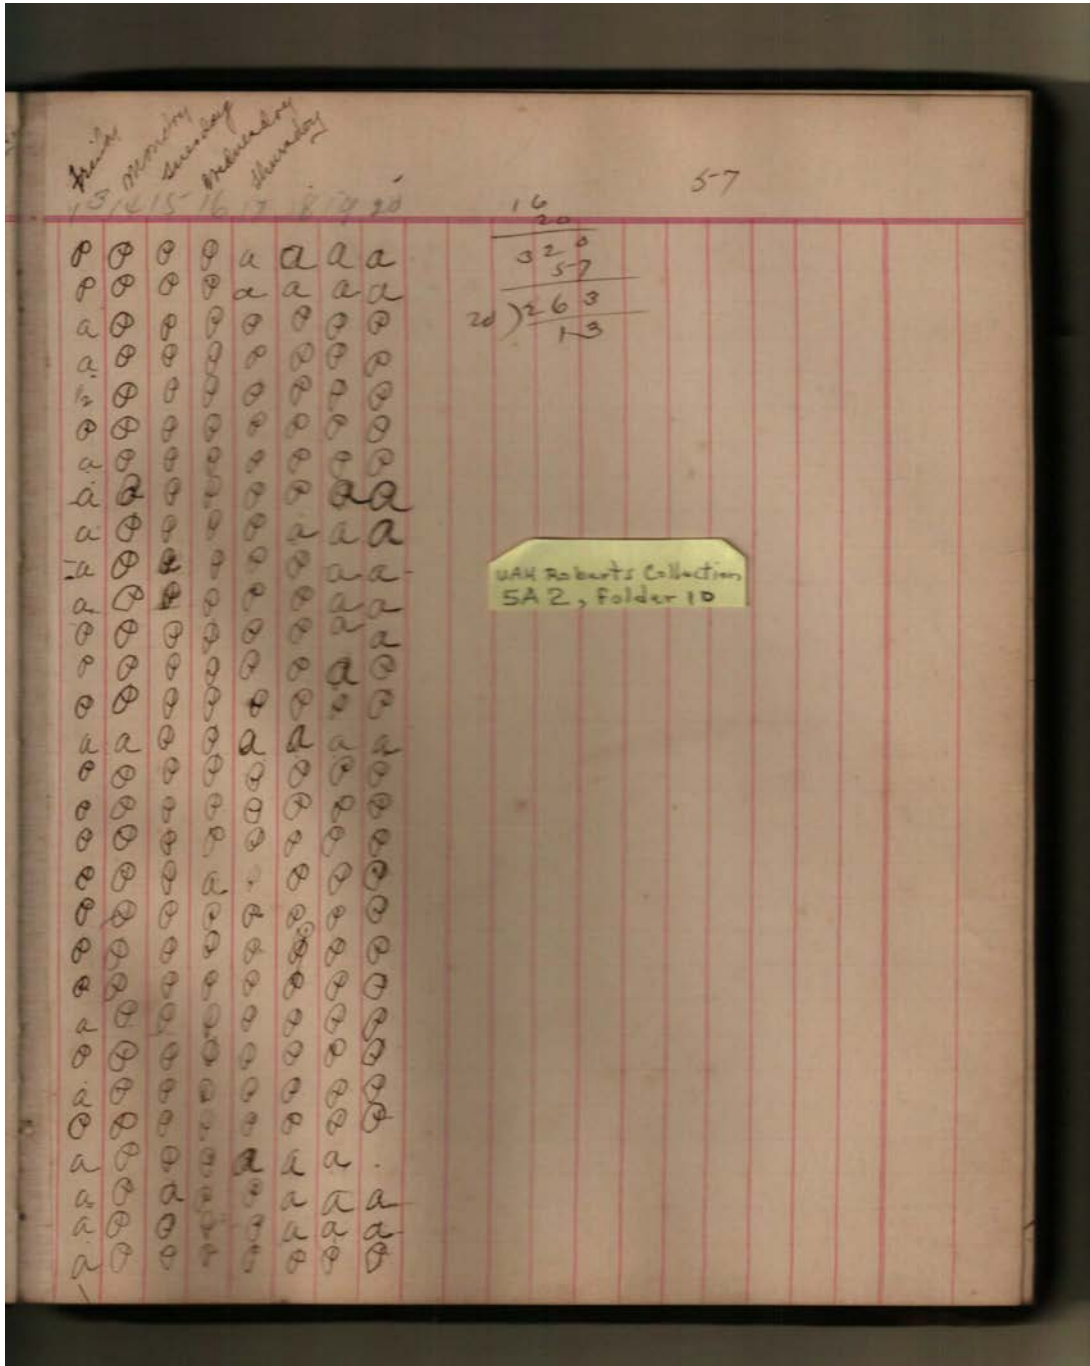 Friday Monday Tuesday Wednesday Thursday
57
13 14 15 16 17 18 19 20
16
20
320
57
20 ) 263
13
P P P P a a a a
P P P P a a a a
a P P P P P P P
a P P P P P P P
1/2 P P P P P P P
P P P P P P P P
a P P P P P P P
a a P P P P a a
a P P P P a a a
a P P P P P a a
a P P P P P a a
P P P P P P a a
P P P P P P a P
P P P P P P P P
a a P P a a a a
P P P P P P P P
P P P P P P P P
P P P P P P P P
P P P a P P P P
P P P P P P P P
P P P P P P P P
P P P P P P P P
a P P P P P P P
P P P P P P P P
a P P P P P P P
P P P P P P P P
a P P P a a a .
a P a P P a a a
a P P P P a a a
a P P P P P P P
UAH Roberts Collection
5A2, Folder 10